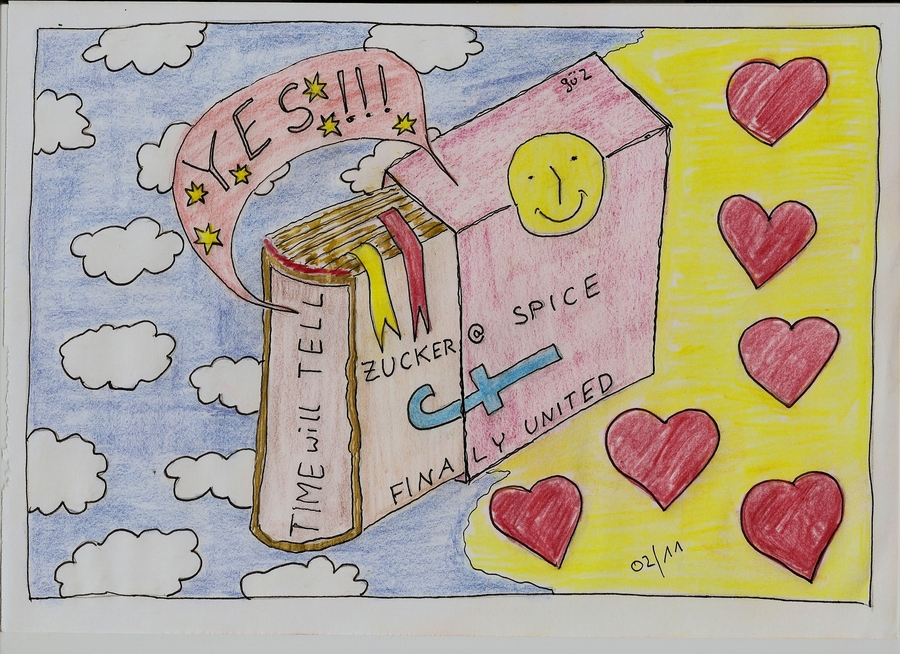 YES!!!
göz
TIME will TELL
ZUCKER @ SPICE
FINALLY UNITED
02/11